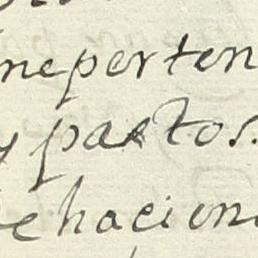 neperten
y pastos.
e hacion